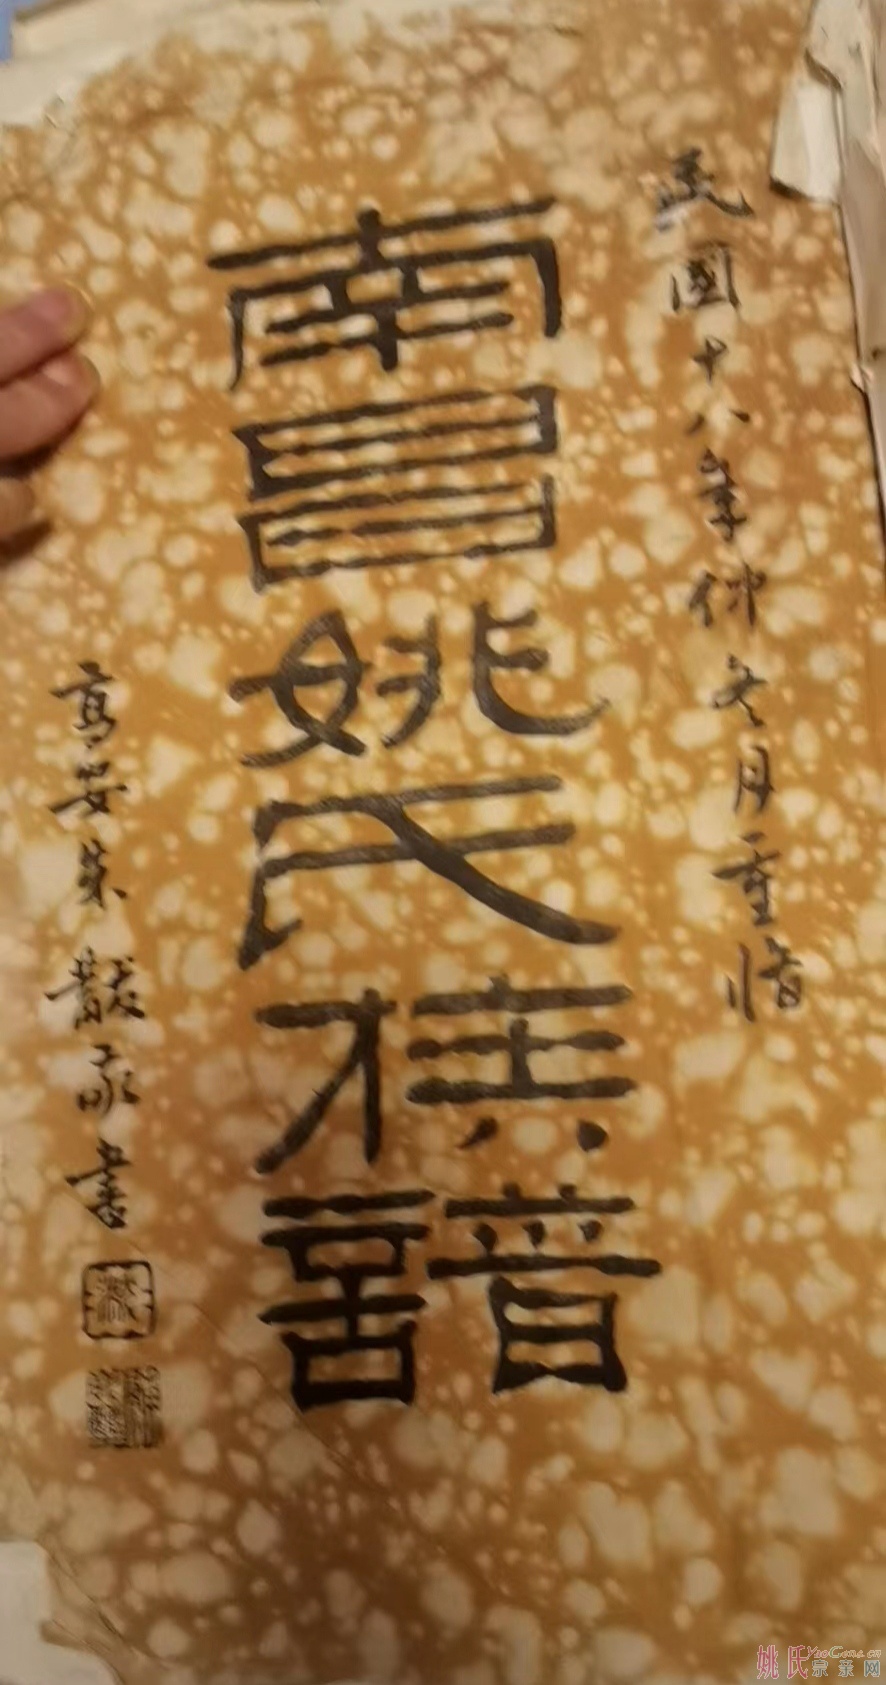 民國十八年仲冬月重脩
南昌姚氏族譜
高安朱
書
姚氏宗亲网
YaoGens.cn